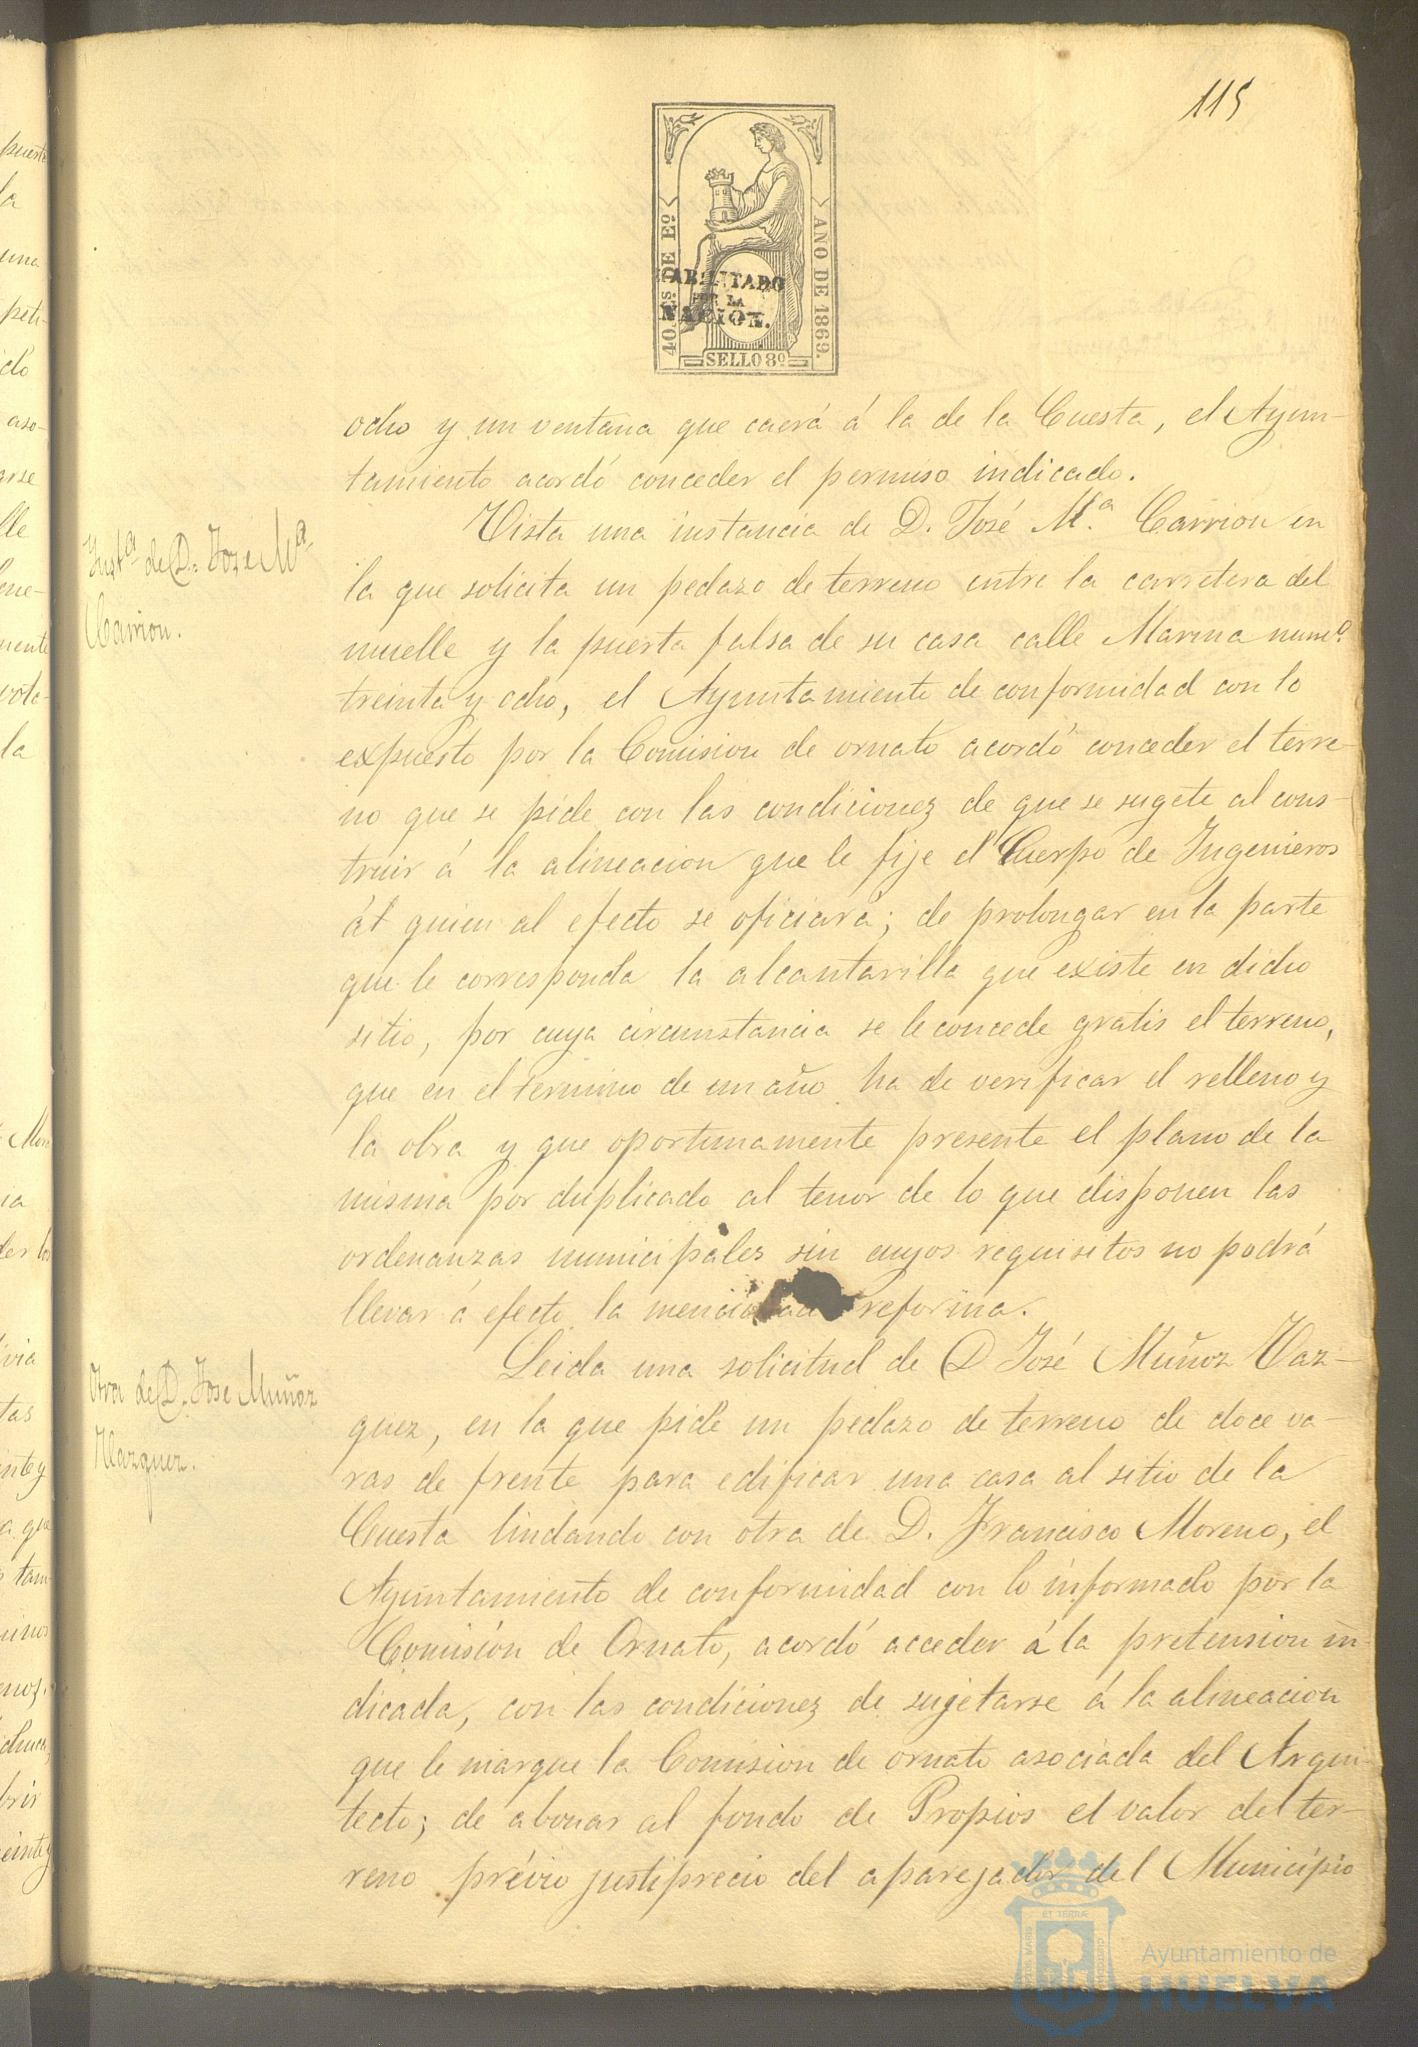 115
40. Cs. DE Eº
AÑO DE 1869.
HABILITADO
POR LA
NACION.
SELLO 8º
ocho y un ventana que caerá á la de la Cuesta, el Ayun-
tamiento acordó conceder el permiso indicado.
Instª de D. Jose Mª
Carrion.
Vista una instancia de D. José M.ª Carrion en
la que solicita un pedazo de terreno entre la carretera del
muelle y la puerta falsa de su casa calle Marina numº
treinta y ocho, el Ayuntamiento de conformidad con lo
expuesto por la Comision de ornato acordó conceder el terre-
no que se pide con las condicionez de que se sugete al cons-
truir á la alineacion que le fije el Cuerpo de Ingenieros
ál quien al efecto se oficiará; de prolongar en la parte
que le corresponda la alcantarilla que existe en dicho
sitio, por cuya circunstancia se le concede gratis el terreno,
que en el termino de un año ha de verificar el relleno y
la obra y que oportunamente presente el plano de la
misma por duplicado al tenor de lo que disponen las
ordenanzas municipales sin cuyos requisitos no podrá
llevar á efecto la mencionada reforma.
Otra de D. Jose Muñoz
Vazquez.
Leida una solicitud de D José Muñoz Vaz-
quez, en la que pide un pedazo de terreno de doce va-
ras de frente para edificar una casa al sitio de la
Cuesta lindando con otra de D. Francisco Moreno, el
Ayuntamiento de conformidad con lo informado por la
Comisión de Ornato, acordó acceder á la pretension in-
dicada, con las condicionez de sujetarse á la alineacion
que le marque la Comision de ornato asociada del Arqui-
tecto; de abonar al fondo de Propios el valor del ter-
reno prévio justiprecio del aparejador del Municipio
Ayuntamiento de
HUELVA